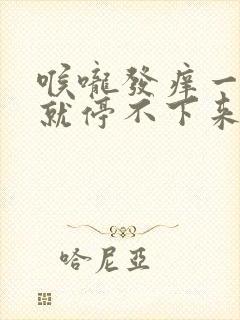 喉嚨發痒一
就停不下来
哈尼亞